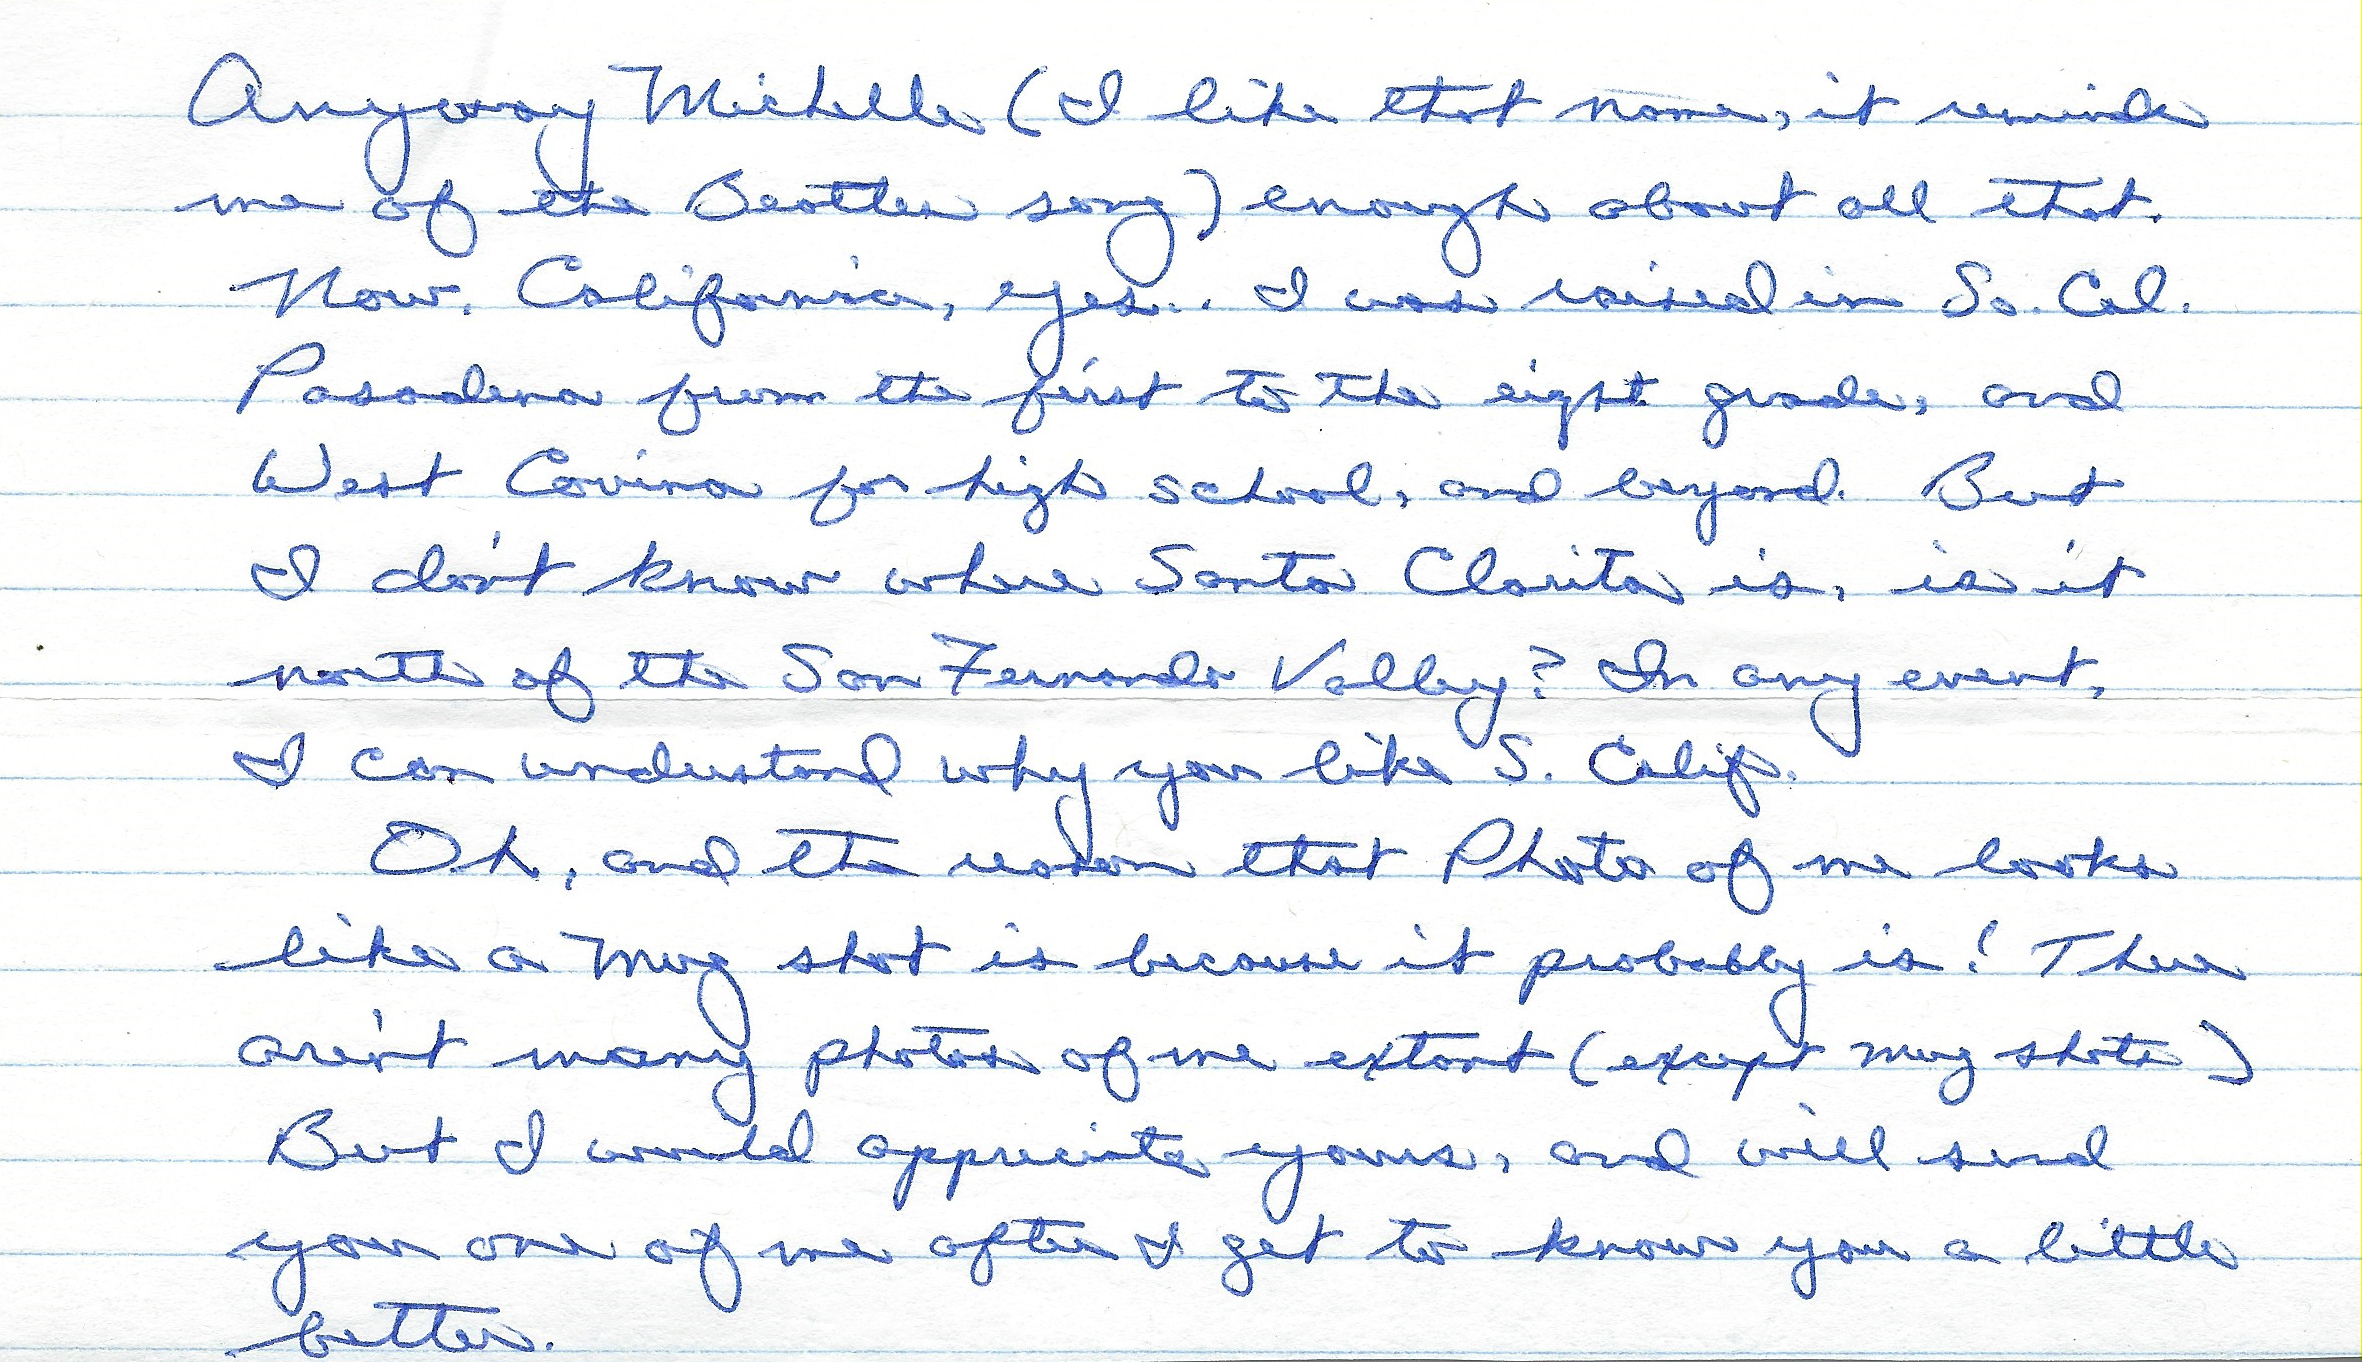 Anyway Michelle (I like that name, it reminds
me of the Beatles song) enough about all that.
Now, California, yes.. I was raised in So. Cal.
Pasadena from the first to the eight grade, and
West Covina for high school, and beyond. But
I don't know where Santa Clarita is, is it
north of the San Fernando Valley? In any event,
I can understand why you like S. Calif.
Oh, and the reason that Photo of me looks
like a mug shot is because it probably is! There
aren't many photos of me extant (except mug shots)
But I would appreciate yours, and will send
you one of me after I get to know you a little
better.